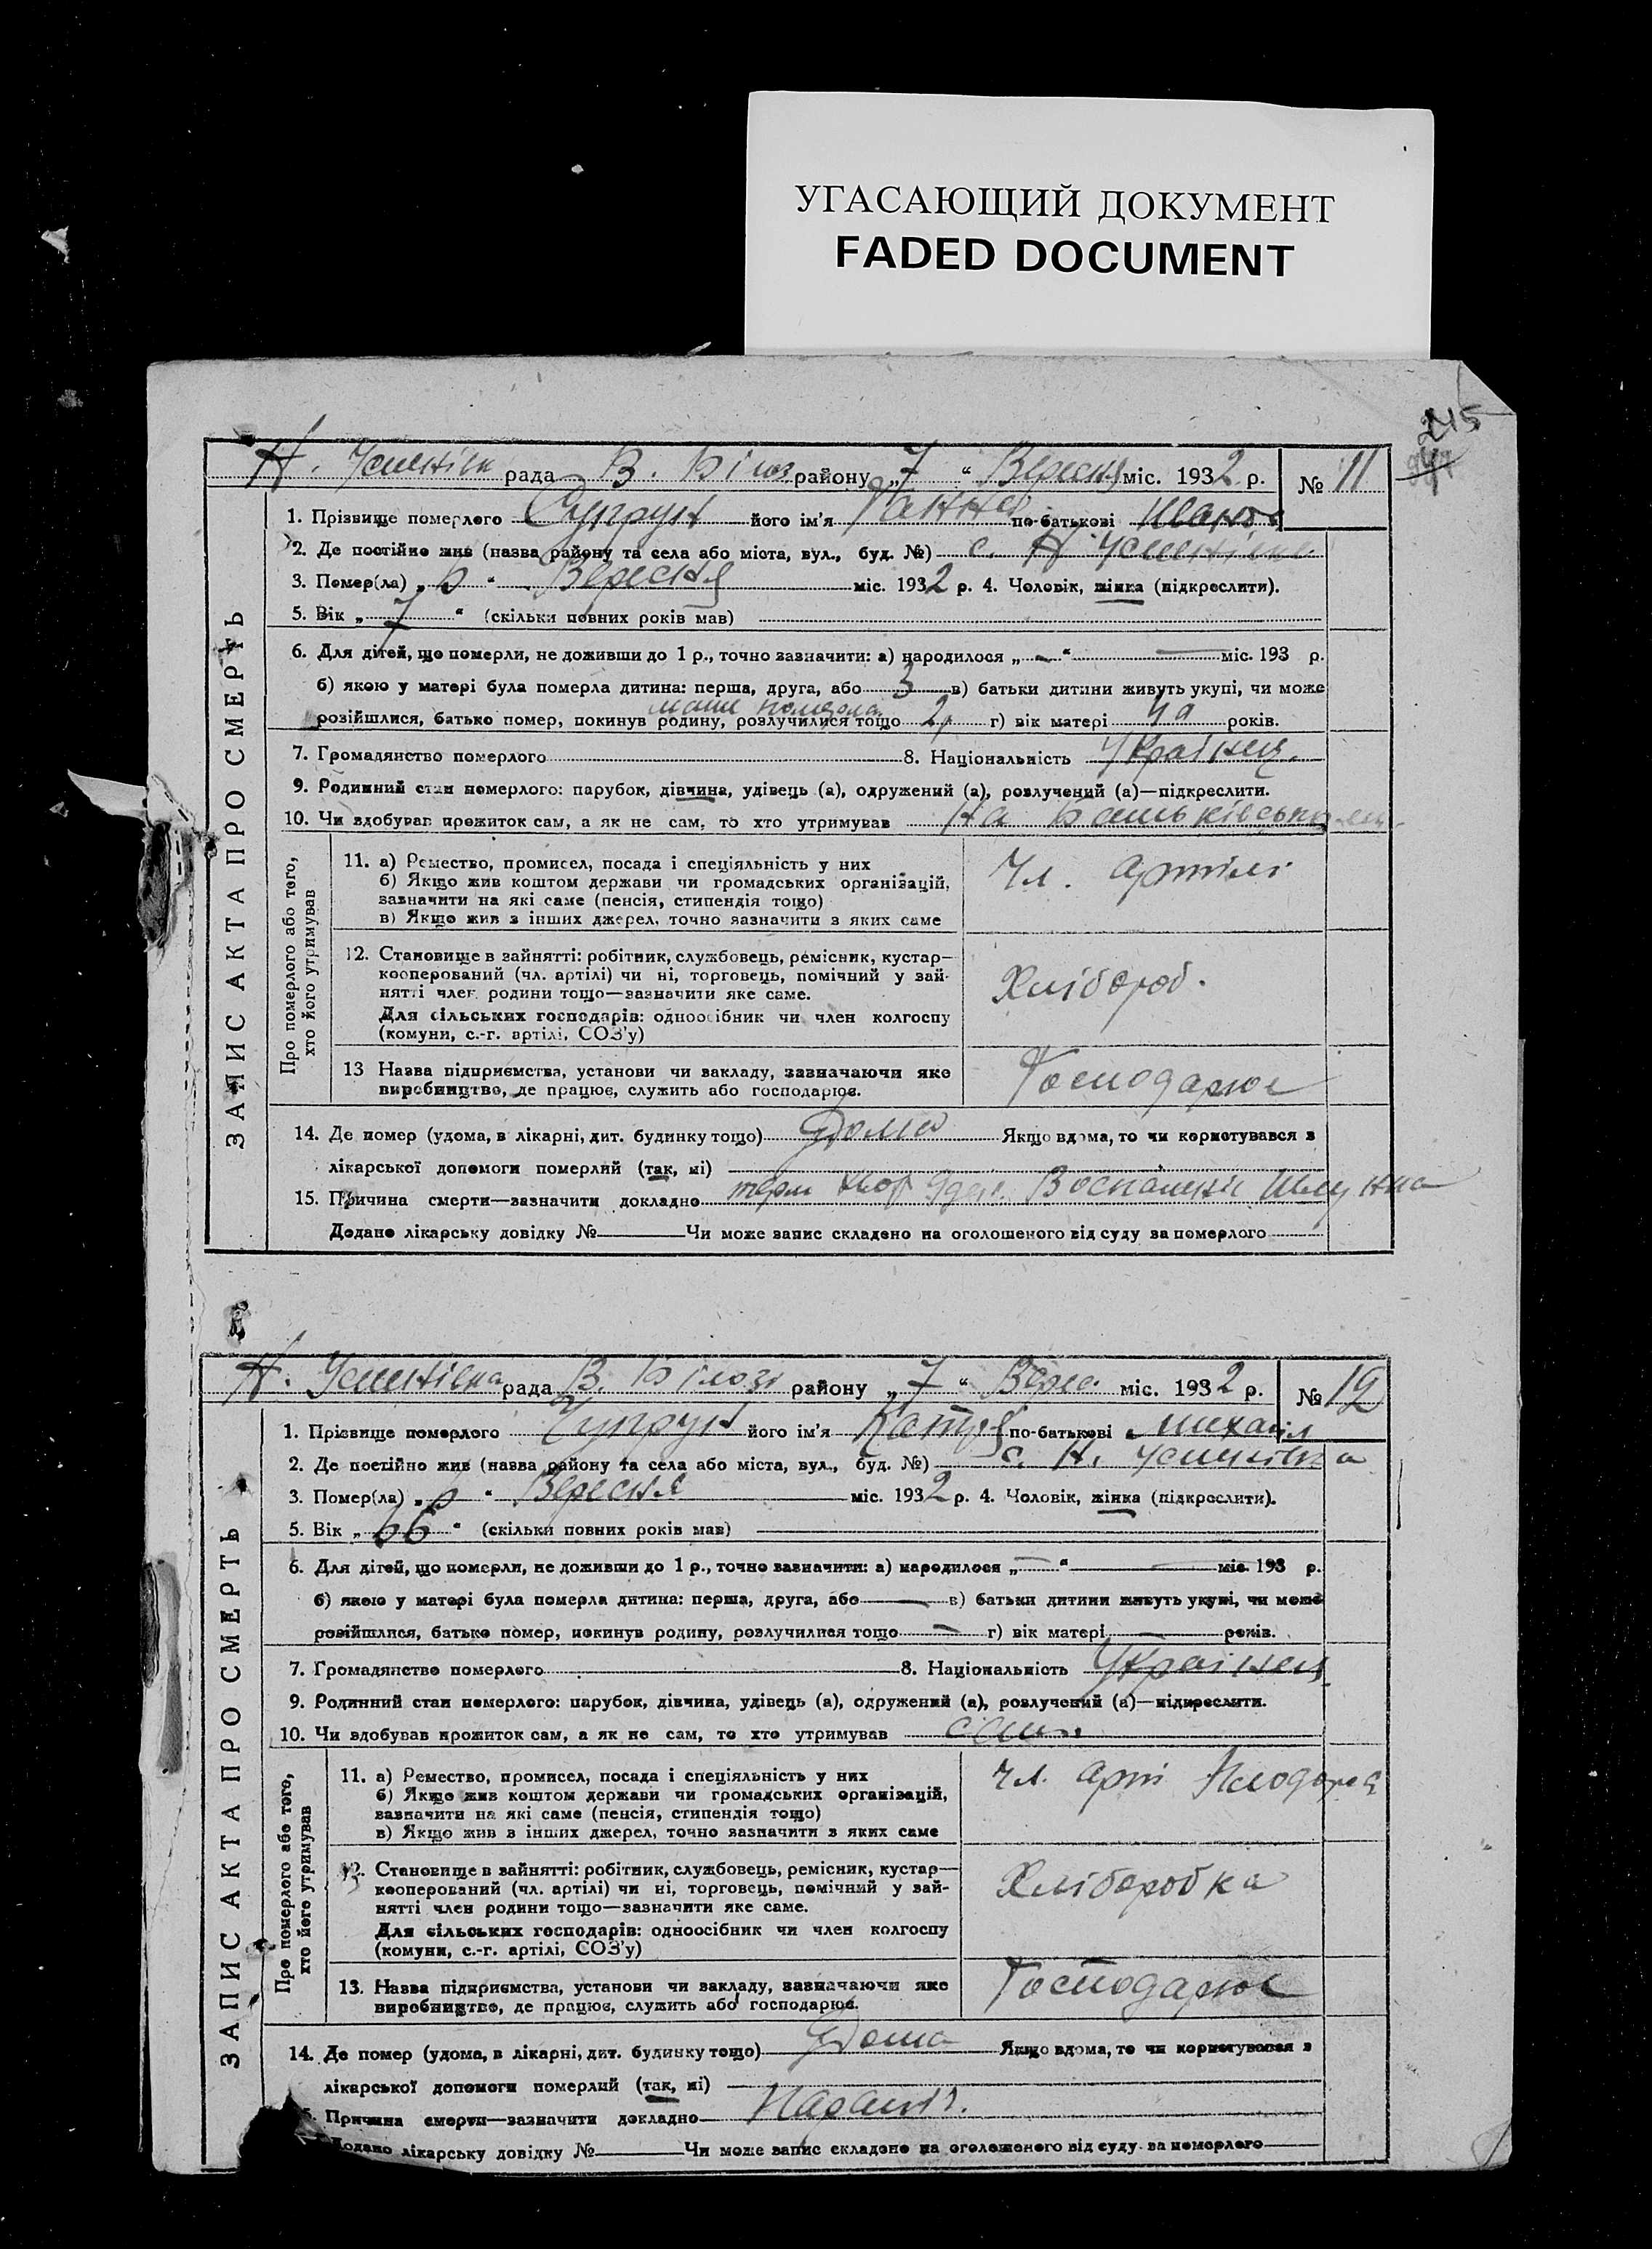 УГАСАЮЩИЙ ДОКУМЕНТ
FADED DOCUMENT
215
ЗАПИС АКТА ПРО СМЕРТЬ
Н. рада В. району „7“ Вересня міс. 1932 р. № 11
1. Прізвище померлого його ім'я Ганна по-батькові Іванов
2. Де постійно жив (назва району та села або міста, вул., буд. №) с. Н
3. Помер(ла) „ “ Вересня міс. 1932 р. 4. Чоловік, жінка (підкреслити).
5. Вік „7“ (скільки повних років мав)
6. Для дітей, що померли, не доживши до 1 р., точно зазначити: а) народилося „—“ — міс. 193 р.
б) якою у матері була померла дитина: перша, друга, або 3 в) батьки дитини живуть укупі, чи може
розійшлися, батько помер, покинув родину, розлучилися тощо г) вік матері років.
7. Громадянство померлого 8. Національність Украінец.
9. Родинний стан померлого: парубок, дівчина, удівець (а), одружений (а), розлучений (а)—підкреслити.
10. Чи здобував прожиток сам, а як не сам, то хто утримував На
Про померлого або того, хто його утримував
11. а) Ремество, промисел, посада і спеціяльність у них
б) Якщо жив коштом держави чи громадських організацій,
зазначити на які саме (пенсія, стипендія тощо)
в) Якщо жив з інших джерел, точно зазначити з яких саме
Чл. артілі
12. Становище в зайнятті: робітник, службовець, ремісник, кустар—
кооперований (чл. артілі) чи ні, торговець, помічний у зай-
нятті член родини тощо—зазначити яке саме.
Для сільських господарів: одноосібник чи член колгоспу
(комуни, с.-г. артілі, СОЗ'у)
Хлібороб.
13 Назва підприємства, установи чи закладу, зазначаючи яке
виробництво, де працює, служить або господарює.
Господарює
14. Де помер (удома, в лікарні, дит. будинку тощо) Удома Якщо вдома, то чи користувався з
лікарської допомоги померлий (так, ні)
15. Причина смерти—зазначити докладно
Додано лікарську довідку № Чи може запис складено на оголошеного від суду за померлого
ЗАПИС АКТА ПРО СМЕРТЬ
Н. рада В. району „7“ Верес. міс. 1932 р. № 12
1. Прізвище померлого його ім'я по-батькові Михаіл
2. Де постійно жив (назва району та села або міста, вул., буд. №) с. Н.
3. Помер(ла) „ “ Вересня міс. 1932 р. 4. Чоловік, жінка (підкреслити).
5. Вік „66“ (скільки повних років мав)
6. Для дітей, що померли, не доживши до 1 р., точно зазначити: а) народилося „—“ — міс. 193 р.
б) якою у матері була померла дитина: перша, друга, або — в) батьки дитини живуть укупі, чи може
розійшлися, батько помер, покинув родину, розлучилися тощо — г) вік матері — років.
7. Громадянство померлого 8. Національність Украінец
9. Родинний стан померлого: парубок, дівчина, удівець (а), одружений (а), розлучений (а)—підкреслити.
10. Чи здобував прожиток сам, а як не сам, то хто утримував сам.
Про померлого або того, хто його утримував
11. а) Ремество, промисел, посада і спеціяльність у них
б) Якщо жив коштом держави чи громадських організацій,
зазначити на які саме (пенсія, стипендія тощо)
в) Якщо жив з інших джерел, точно зазначити з яких саме
Чл. арті
12. Становище в зайнятті: робітник, службовець, ремісник, кустар—
кооперований (чл. артілі) чи ні, торговець, помічний у зай-
нятті член родини тощо—зазначити яке саме.
Для сільських господарів: одноосібник чи член колгоспу
(комуни, с.-г. артілі, СОЗ'у)
Хліборобка
13. Назва підприємства, установи чи закладу, зазначаючи яке
виробництво, де працює, служить або господарює.
Господарює
14. Де помер (удома, в лікарні, дит. будинку тощо) Удома Якщо вдома, то чи користувався з
лікарської допомоги померлий (так, ні)
Причина смерти—зазначити докладно Параліч.
Додано лікарську довідку № Чи може запис складено на оголошеного від суду за померлого